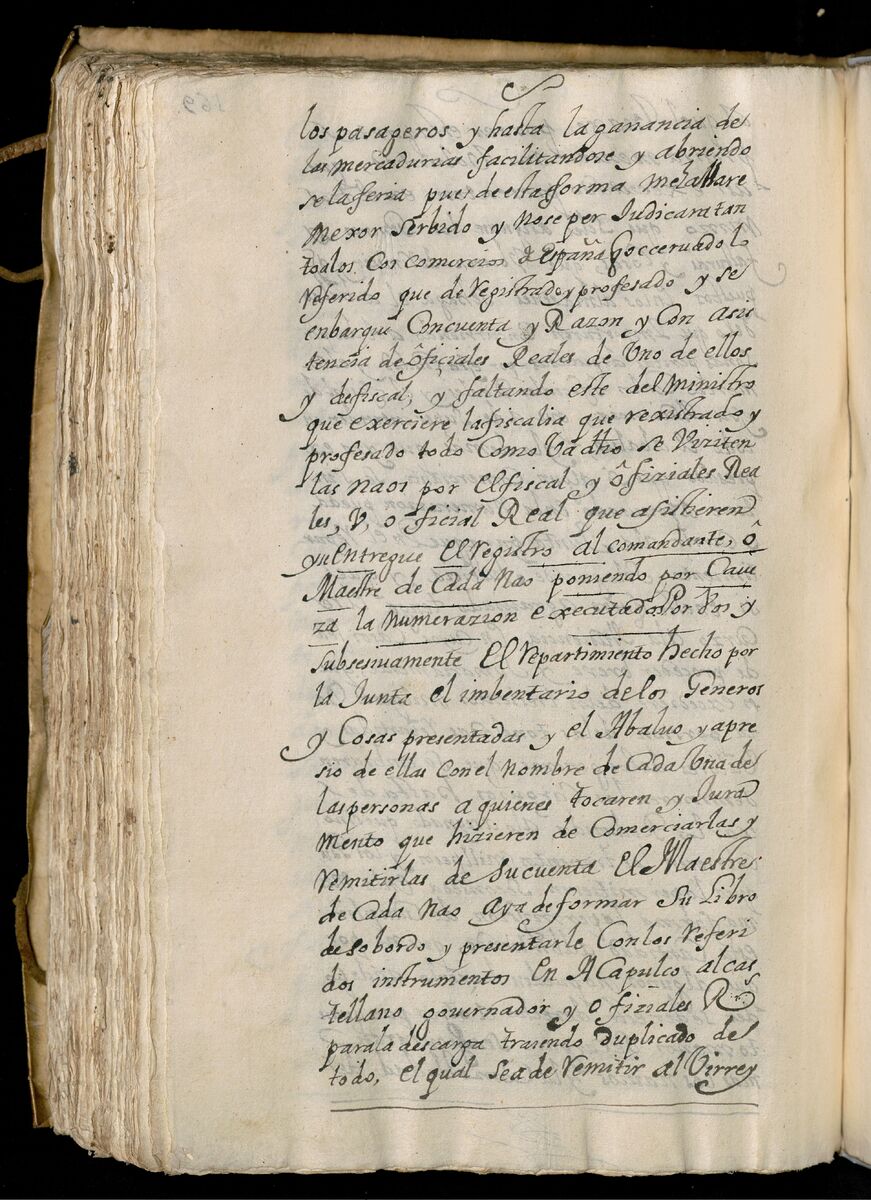 los pasageros y hasta la ganancia de
las mercadurias facilitandose y abriendo
se la feria pues de esta forma me hallare
Mexor serbido y no se per Judicara tan
to a los Comercios de España
Referido que de Registrado y profesado y se
enbarque Concuenta y Razon y Con asis
tencia de ôficiales Reales de Uno de ellos
y de fiscal, y faltando este del Ministro
que exerciere la fiscalia que rexistrado y
profesado todo Como Va dho se Viziten
las naos por El fiscal y ôfiziales Rea
les, V, oficial Real que asistieren
y se Entregue El registro al comandante, ô
Maestre de Cada Nao poniendo por Cave
za la numerazion executada Por Vos y
Subsesivamente El repartimiento hecho por
la Junta el imbentario de los Generos
y Cosas presentadas y el Abaluo y apre
sio de ellas Con el nombre de Cada Una de
las personas a quienes tocaren y Jura
Mento que hizieren de Comerciarlas y
remitirlas de su cuenta El Maestre
de Cada Nao aya de formar Su Libro
de sobordo y presentarle Con los referi
dos instrumentos En ACapulco al cas
tellano governador y ofiziales Rs
para la descarga traiendo duplicado de
todo, el qual sea de remitir al Virrey
169